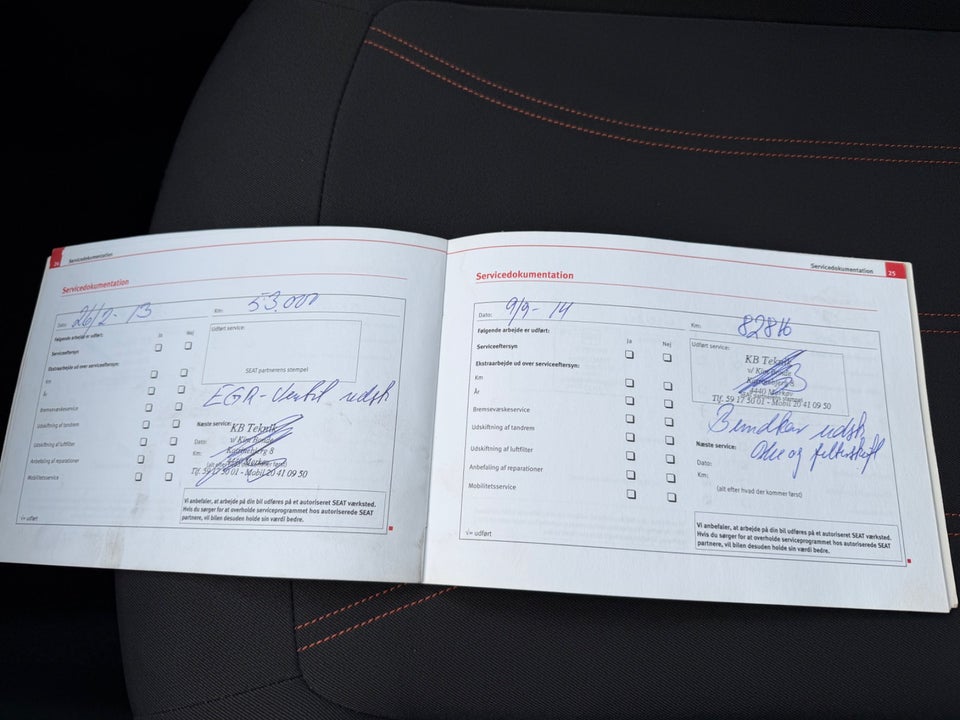 24
Servicedokumentation
Servicedokumentation
Dato: 26/2-13
Km: 53.000
Følgende arbejde er udført:
Ja Nej
Serviceeftersyn
Ekstraarbejde ud over serviceeftersyn:
Km
År
Bremsevæskeservice
Udskiftning af tandrem
Udskiftning af luftfilter
Anbefaling af reparationer
Mobilitetsservice
Udført service:
SEAT partnerens stempel
EGR-Ventil udsk
Næste service:
KB Teknik
v/ Kim Bonde
Dato:
Km:
(alt efter hvad der kommer først)
Tlf. 59 17 50 01 - Mobil 20 41 09 50
Vi anbefaler, at arbejde på din bil udføres på et autoriseret SEAT værksted.
Hvis du sørger for at overholde serviceprogrammet hos autoriserede SEAT
partnere, vil bilen desuden holde sin værdi bedre.
√= udført
Servicedokumentation
25
Servicedokumentation
Dato: 9/9-14
Km: 82816
Følgende arbejde er udført:
Ja Nej
Serviceeftersyn
Ekstraarbejde ud over serviceeftersyn:
Km
År
Bremsevæskeservice
Udskiftning af tandrem
Udskiftning af luftfilter
Anbefaling af reparationer
Mobilitetsservice
Udført service:
KB Teknik
v/ Kim Bonde
4440 Mørkøv
Tlf. 59 17 50 01 - Mobil 20 41 09 50
Bundkar udsk
Olie og filterskift
Næste service:
Dato:
Km:
(alt efter hvad der kommer først)
Vi anbefaler, at arbejde på din bil udføres på et autoriseret SEAT værksted.
Hvis du sørger for at overholde serviceprogrammet hos autoriserede SEAT
partnere, vil bilen desuden holde sin værdi bedre.
√= udført